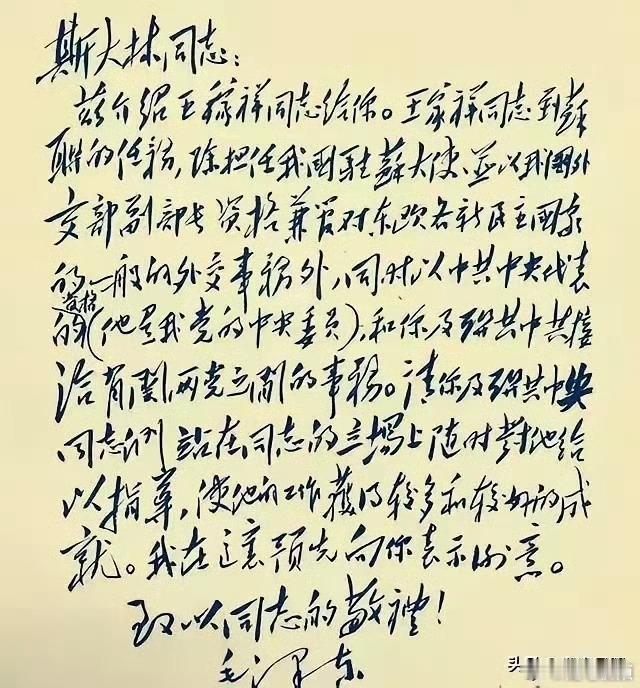 斯大林同志：
兹介绍王稼祥同志给你。王家祥同志到蘇
联的任務，除担任我國駐蘇大使，並以我國外
交部副部长资格兼管对东欧各新民主國家
的一般的外交事務外，同时以中共中央代表
资格
的(他是我党的中央委员)，和你及聨共中共接
洽有関両党之间的事務。请你及聨共中央
同志们站在同志的立場上随时對他给
以指導，使他的工作獲得较多和较好的成
就。我在這裏预先向你表示谢意。
致以同志的敬禮！
毛泽东
头